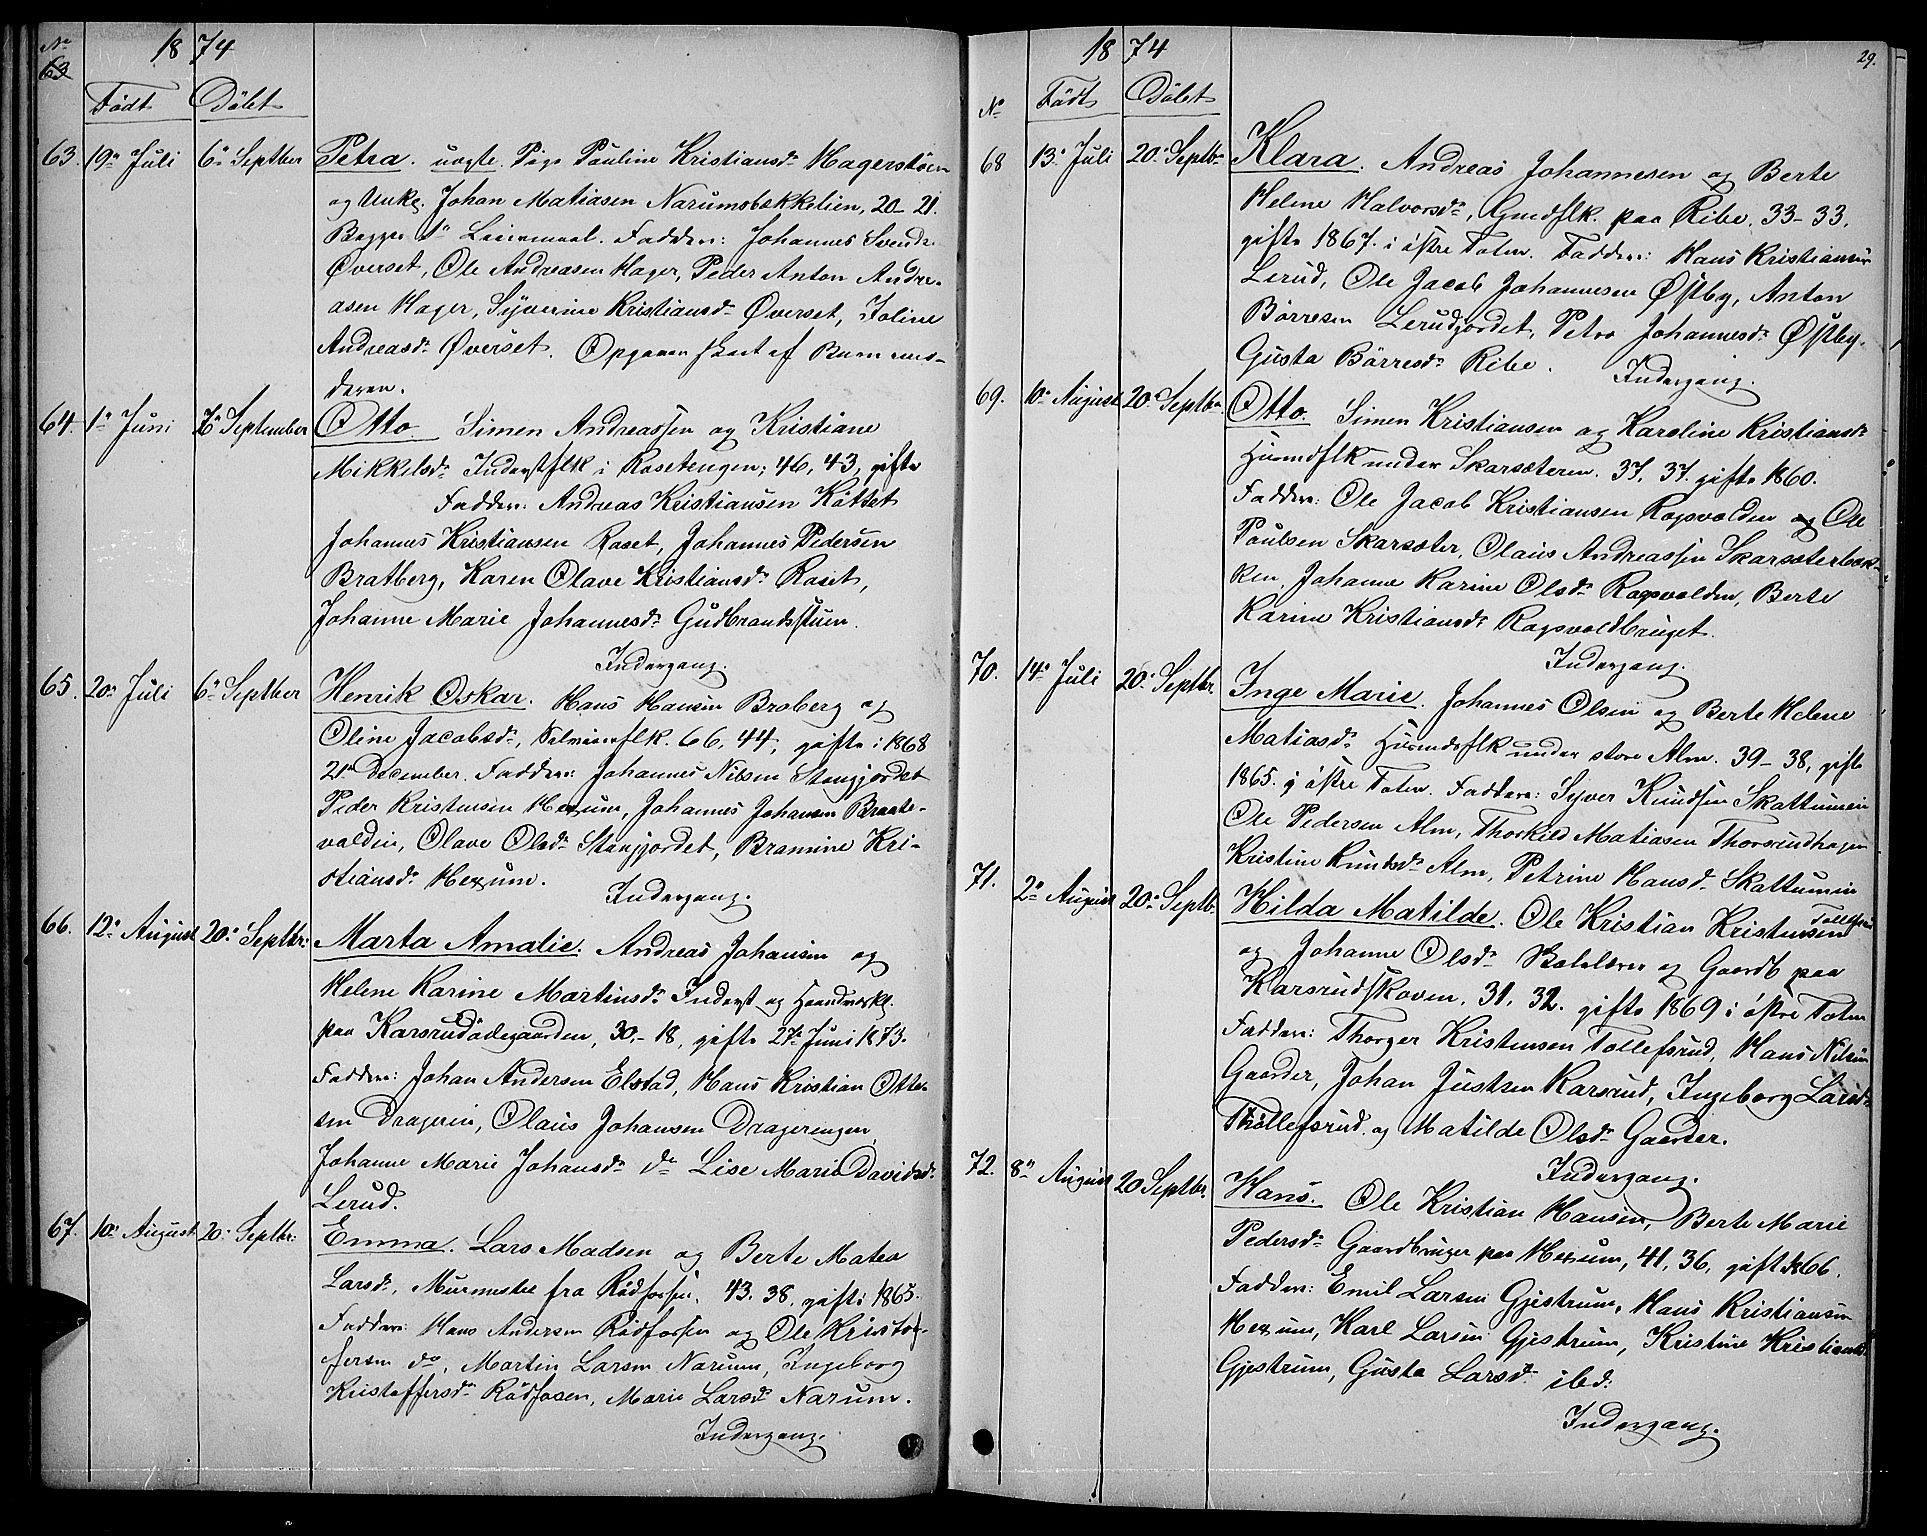 No 1874
63
Født Døbt
63. 19de Juli 6te Septber Petra. uægte. Pige Pauline Kristiansdr Hagerstøen
og Unkg. Johan Matiasen Narumsbækkelien, 20-21.
Begges 1ste Leiermaal. Faddere: Johannes Svends.
Øverset, Ole Andreasen Hager, Peder Anton Andre-
asen Hager, Syverine Kristiansdr Øverset, Joline
Andreasdr Øverset. Opgaven skeet af
deren.
64. 1ste Juni 6 September Otto. Simen Andreassen og Kristiane
Mikkelsdr Inderstflk i Rosetengen; 46, 43, gifte
Faddere: Andreas Kristiansen Kættet
Johannes Kristiansen Roset, Johannes Pedersen
Bratberg, Karen Olave Kristiansdr Roset,
Johanne Marie Johannesdr Gudbrandsstuen.
Indergang.
65. 20de Juli 6te Septber Henrik Oskar. Hans Hansen Broberg og
Oline Jacobsdr, 66, 44, gifte: 1868
21de December. Faddere: Johannes Nilsen Stangjordet
Peder Kristensen Hexum, Johannes Johansen Braate-
volden, Olave Olsdr Stangjordet, Bramine Kri-
stiansdr Hexum.
Indergang.
66. 12te August 20de Septbr: Marta Amalie. Andreas Johansen og
Helene Karine Martinsdr Inderst og Haandværkr.
paa Karsrudødegaarden, 30,-18, gifte 27de Juni 1873.
Faddere: Johan Andersen Elstad, Hans Kristian Otte-
sen Drageren, Olaus Johansen Dragerengen
Johanne Marie Johansdr do Lise Marie Davidsdr
Lerud.
67. 10de August 20de Septbr: Emma. Lars Madsen og Berte Matea
Larsdr, Murmester fra Rødfossen. 43. 38. gifte: 1865.
Faddere: Hans Andersen Rødfossen og Ole Kristof-
fersen do, Martin Larsen Narum, Ingeborg
Kristoffersdr Rødfosen, Marie Larsdr Narum.
Indergang.
29.
1874
No Født Døbt
68 13de Juli 20de Septbr Klara. Andreas Johannesen og Berte
Helene Halvorsdr, Gmdflk. paa Ribe, 33-33,
gifte 1867. i østre Toten. Faddere: Hans Kristiansen
Lerud, Ole Jacob Johannesen Østby, Anton
Børresen Lerudjordet, Petra Johannesdr Østby.
Gusta Børresdr Ribe.
Indergang.
69. 10de August 20de Septbr Otto. Simen Kristiansen og Karoline Kristiansdr
Husmdflk under Skarsæteren. 37, 37. gifte 1860.
Faddere: Ole Jacob Kristiansen Ragsvolden og Ole
Paulsen Skarsæter, Olaus Andreassen Skarsæterbæk-
ken, Johanne Karine Olsdr Ragsvolden, Berte
Karine Kristiansdr Ragsvoldbruget.
Indergang.
70. 14de Juli 20de Septbr. Inge Marie. Johannes Olsen og Berte Helene
Matiasdr Husmdsflk under store Alm. 39-38, gifte
1865. i østre Toten. Faddere: Syver Knudsen Skattumeie
Ole Pedersen Alm, Thorkild Matiasen Thorsrudhagen
Kristine Knudsdr Alm, Petrine Hansdr Skattumeie
71. 2den August 20de Septb. Hilda Matilde. Ole Kristian Kristensen Tollefsrud
og Johanne Olsdr og Gaardb paa
Karsrudskoven, 31, 32. gifte 1869 i østre Toten
Faddere: Thorger Kristensen Tollefsrud, Hans Nilsen
Gaarder, Johan Justsen Karsrud, Ingeborg Larsdr
Thollefsrud og Matilde Olsdr Gaarder.
Indergang.
72. 8de August 20 Septbr Hans. Ole Kristian Hansen, Berte Marie
Pedersdr Gaardbruger paa Hexum, 41, 36, gift 1866.
Faddere: Emil Larsen Gjestrum, Hans Kristiansen
Hexum, Karl Larsen Gjestrum, Kristine Kristiansdr
Gjestrum, Gusta Larsdr ibd:
Indergang.